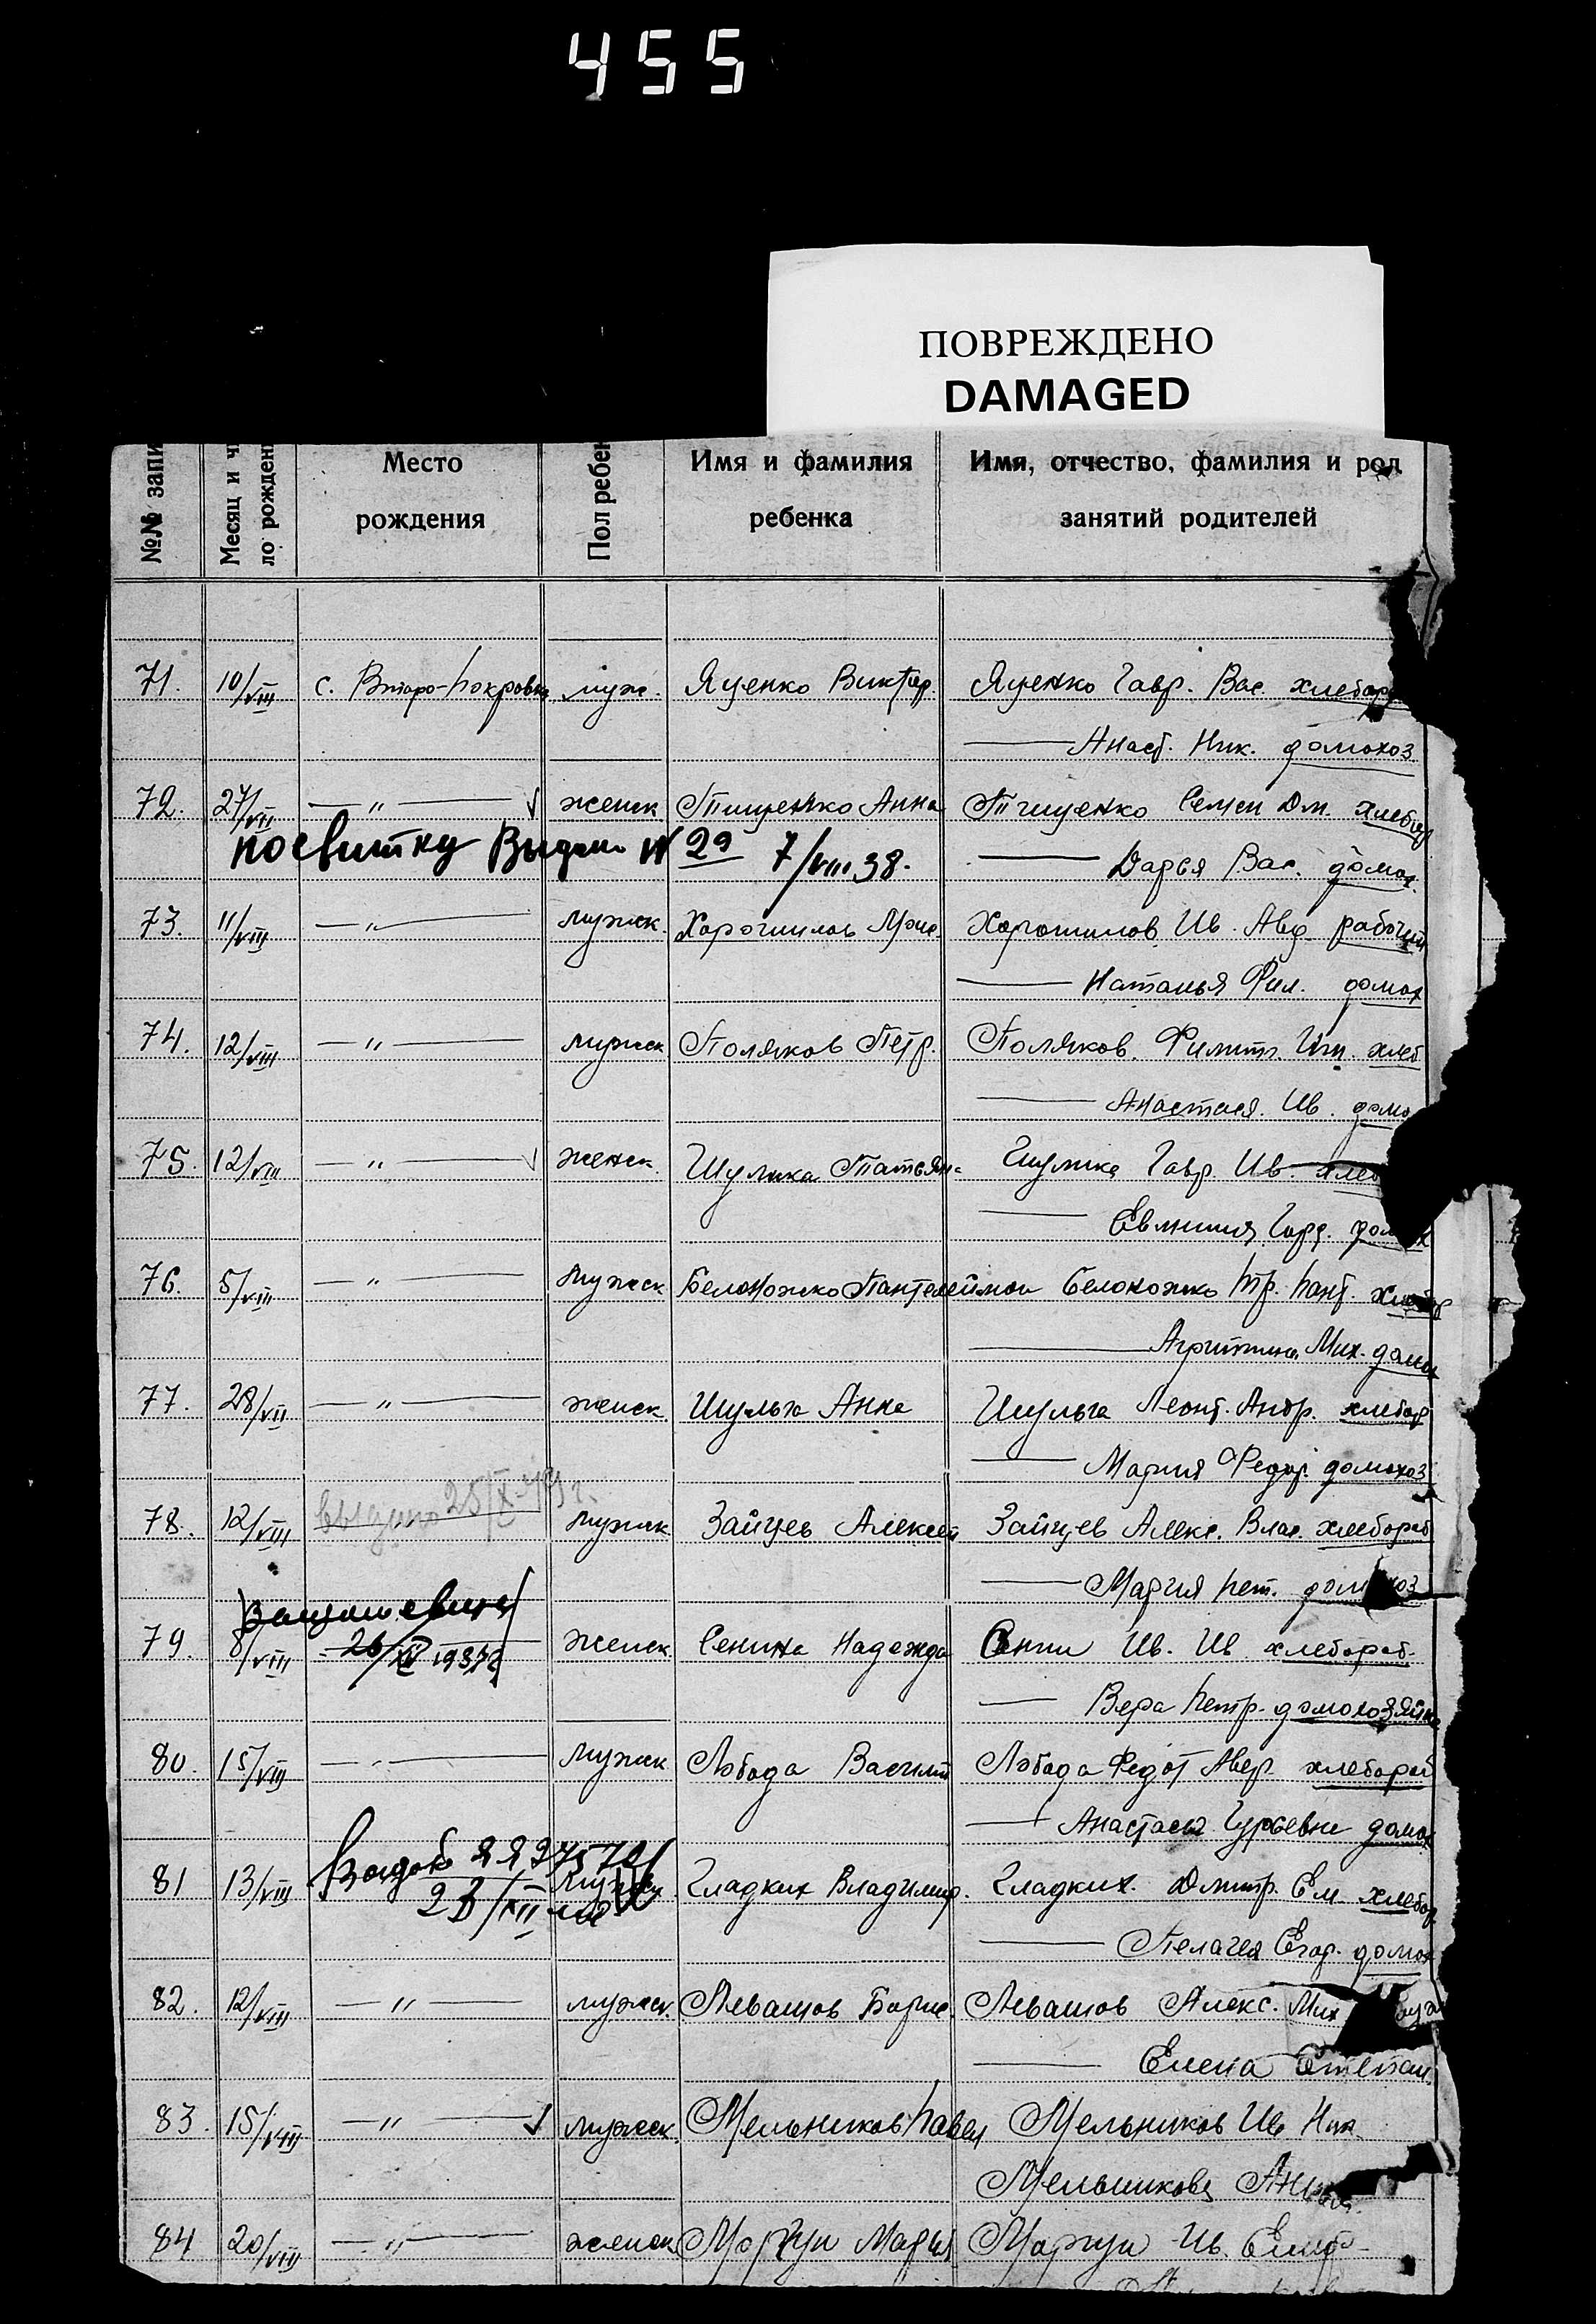 455
ПОВРЕЖДЕНО
DAMAGED
№№ запи Месяц и ч Место Пол ребен Имя и фамилия Имя, отчество, фамилия и род
ло рожден рождения ребенка занятий родителей
71. 10/VIII с. Второ-Покровка муж. Яценко Виктор. Яценко Гавр. Вас. хлебор
Анаст. Ник. домохоз
72. 27/VII — " — женск Тищенко Анна Тищенко Семен Дм. хлебор
посвитку Видано № 29 7/VIII 38. Дарья Вас. домох.
73. 11/VIII — " — мужск. Хорошилов Хорошилов Ив. Авд. рабочий
Наталья Фил. домох
74. 12/VIII — " — мужск Поляков Петр. Поляков. хлеб.
Анастася. Ив. домо
75. 12/VIII — " — женск. Шулика Татьяна Шулика Гавр. Ив. хлеб
Евмения домох
76. 5/VIII — " — мужск Белоножко Пантелеймон Белоножко Тр. Пант. хлебор
Мих. домох
77. 28/VII — " — женск. Шульга Анна Шульга Леонт. Андр. хлебор
Мария Федор. домохоз
выдано 25/X
78. 12/VIII — " — мужск Зайцев Алексей Зайцев Алекс. Влас. хлебороб
Мария Пет. домохоз
79. 8/VIII 26/XII 1937г женск. Сенина Надежда Сенин Ив. Ив хлебороб.
Вера Петр. домохозяйка
80. 15/VIII — " — мужск Лобода Василий Лобода Федот Авер. хлебороб
Анастасья Гурьевна домох
81 13/VIII мужск. Гладких Владимир. Гладких. Дмитр. Ем. хлебор
Пелагея Егор. домох
82. 12/VIII — " — мужск. Левашов Борис. Левашов Алекс. Мих
Елена Степан.
83. 15/VIII — " — мужск. Мельников Павел Мельников Ив Ник
Мельникова
84 20/VIII — " — женск Моргун Марья Моргун Ив.